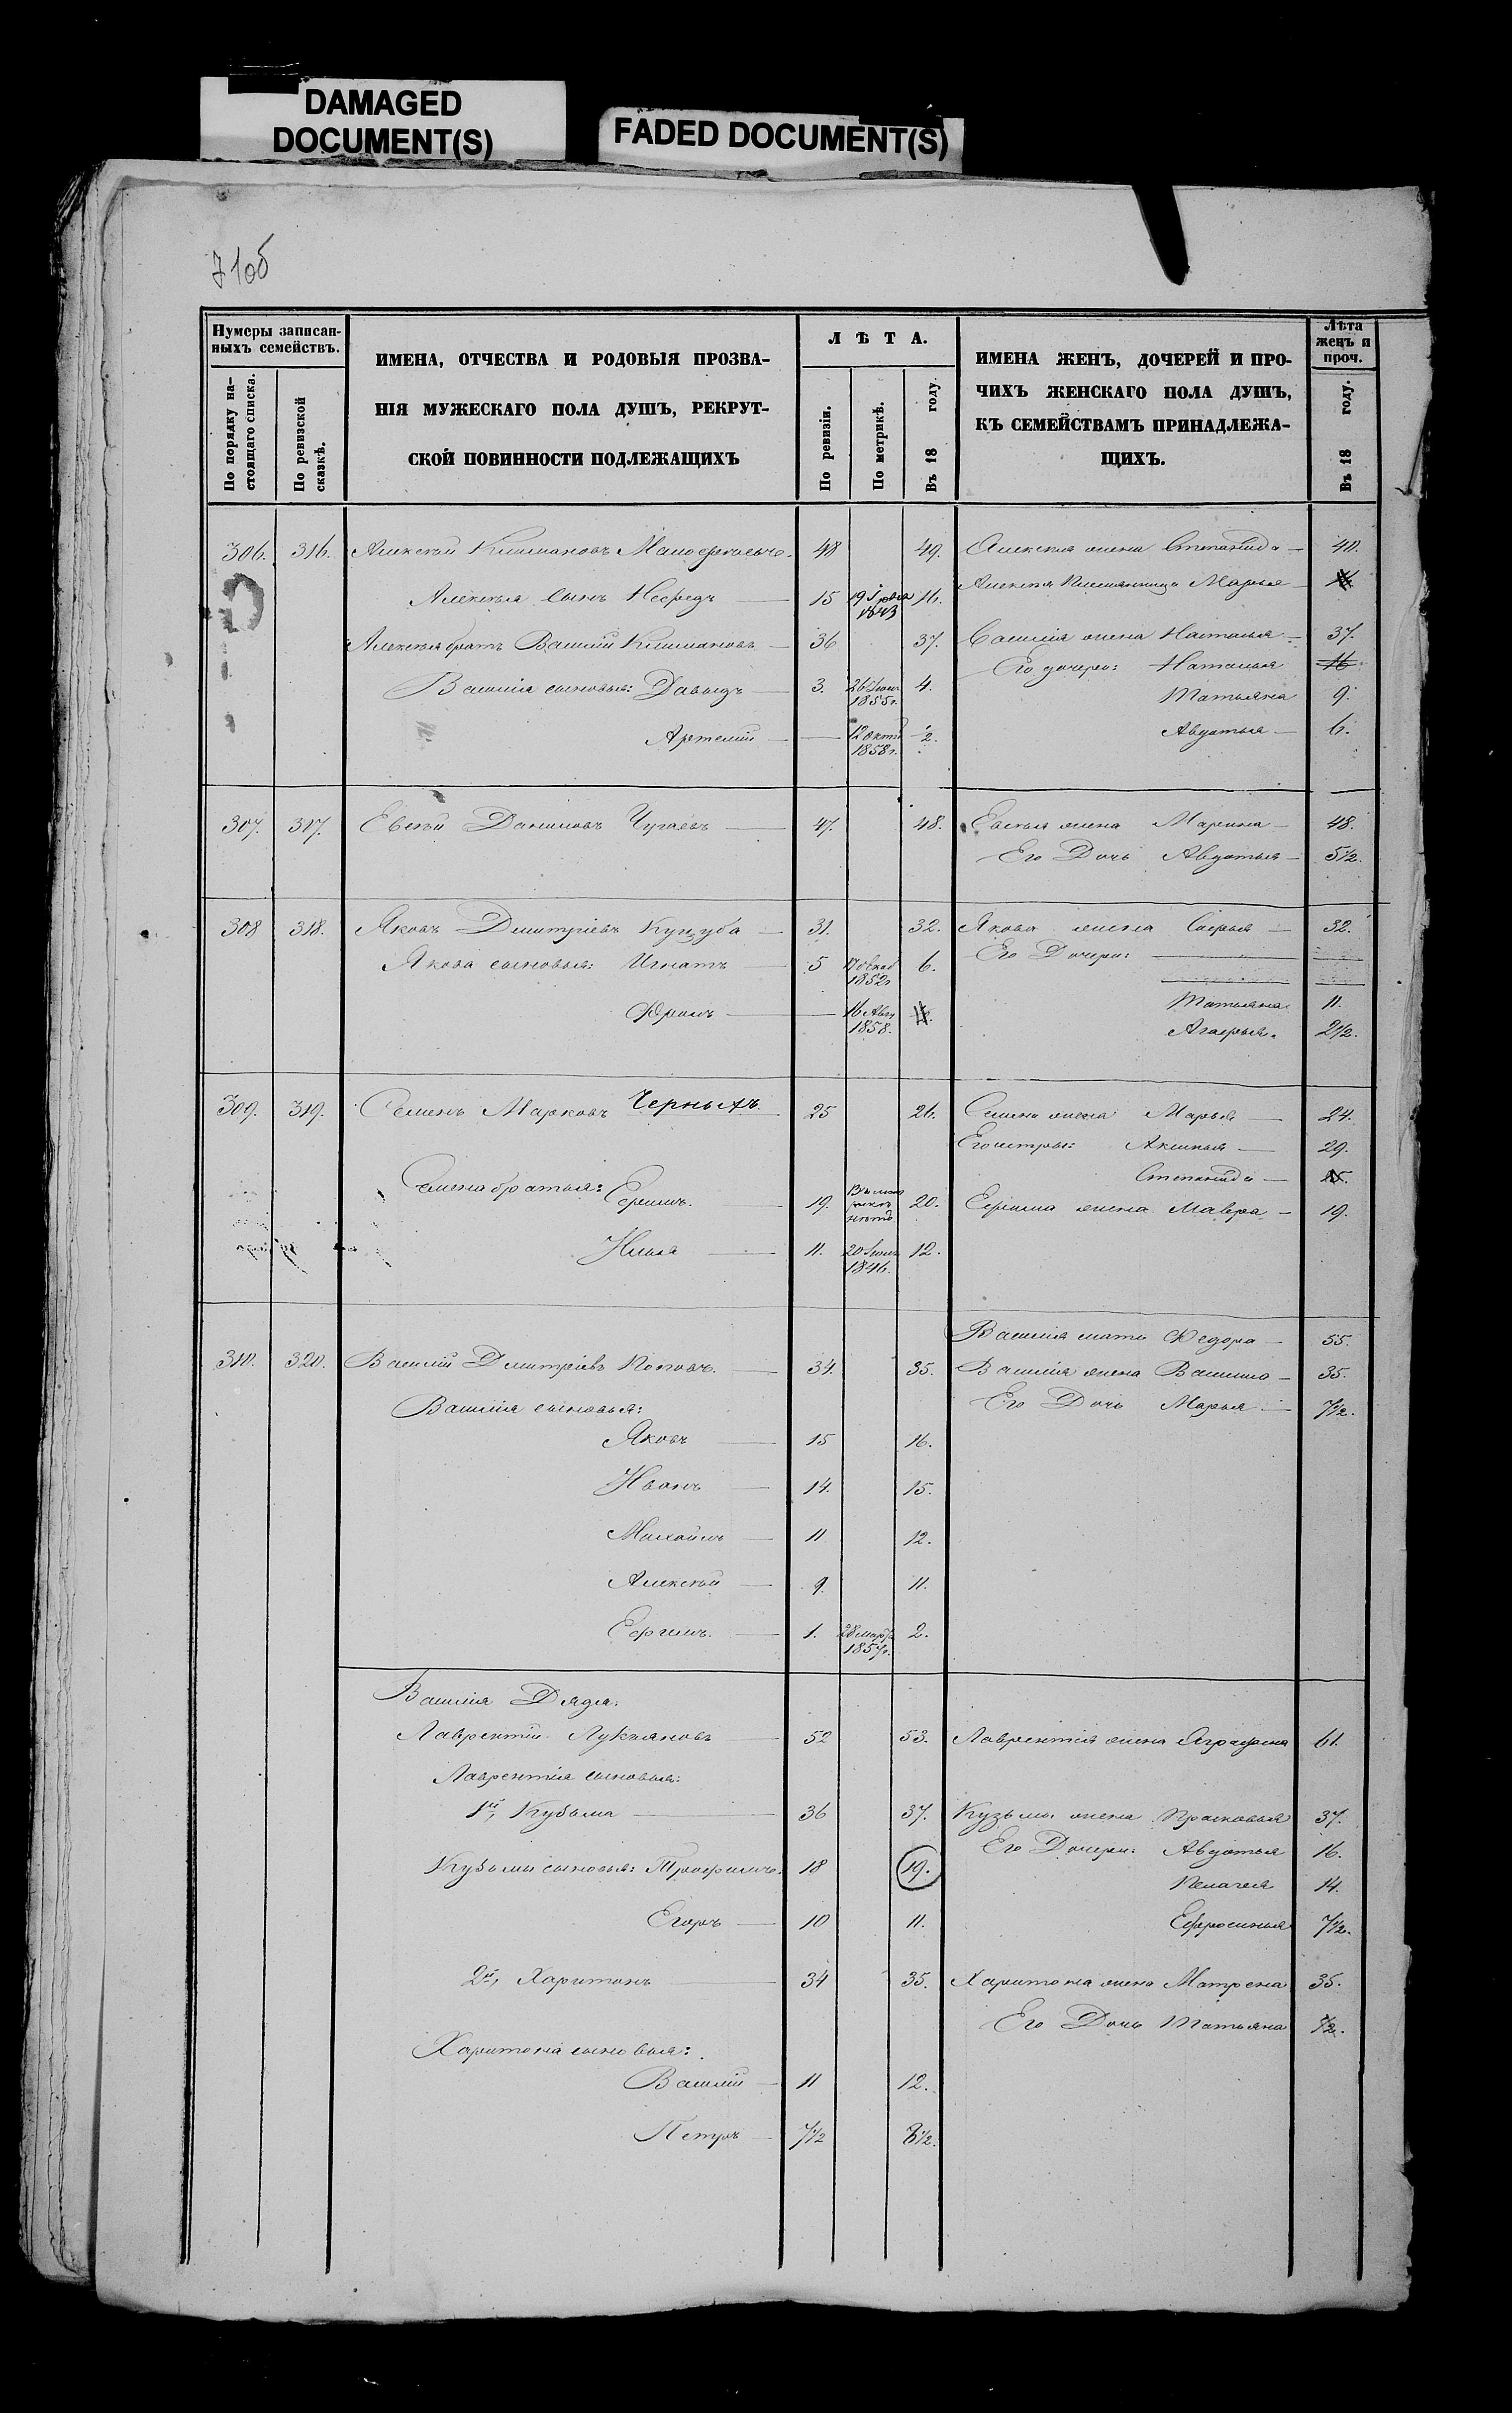 DAMAGED
DOCUMENT(S)
FADED DOCUMENT(S)
71об
Нумеры записан-
ныхъ семействъ.
По порядку на-
стоящаго списка.
По ревизской
сказкѣ.
ИМЕНА, ОТЧЕСТВА И РОДОВЫЯ ПРОЗВА-
НІЯ МУЖЕСКАГО ПОЛА ДУШЪ, РЕКРУТ-
СКОЙ ПОВИННОСТИ ПОДЛЕЖАЩИХЪ
ЛѢТА.
По ревизіи.
По метрикѣ.
Въ 18 году.
ИМЕНА ЖЕНЪ, ДОЧЕРЕЙ И ПРО-
ЧИХЪ ЖЕНСКАГО ПОЛА ДУШЪ,
КЪ СЕМЕЙСТВАМЪ ПРИНАДЛЕЖА-
ЩИХЪ.
Лѣта
женъ и
проч.
Въ 18 году.
306. 316. Алексѣй Климановъ 48 49. Алексѣя жена Степанида 40.
Алексѣя племянница Марья
Алексѣя сынъ Нефедъ 15 1843 16.
Алексѣя братъ Василій Климановъ 36 37. Василія жена Наталья 37.
Его дочери: Наталья 16
Василія сыновья: Давыдъ 3. 26 Іюня 1855г. 4. Татьяна 9.
Артемій 12 Октяб 1858г. 2. Авдотья 6.
307. 317. Евсѣй Даниловъ Чугаевъ 47. 48. Евсѣя жена Марина 48.
Его Дочь Авдотья 5½.
308 318. Яковъ Дмитріевъ Кундуба 31. 32. Якова жена Софья 32.
Его Дочери:
Якова сыновья: Игнатъ 5 1852г 6.
Татьяна 11.
Фролъ 16 Авгу 1858.
Агафья. 2½.
309. 319. Семенъ Марковъ Черныхъ. 25 26. Семена жена Марья 24.
Его сестры: Аксинья 29.
Степанида
Семена братья: Ефимъ. 19. Въ метрикѣ нѣтъ 20. Ефима жена Мавра 19.
Илья 11. 20 Іюля 1846. 12.
Василія мать Федора 55.
310. 320. Василій Дмитріевъ Поповъ. 34. 35. Василія жена Василиса 35.
Василія сыновья: Его Дочь Марья 7½.
Яковъ 15 16.
Иванъ 14. 15.
Михайлъ 11 12.
Алексѣй 9. 11.
Ефимъ. 1. 28 мар 1857г. 2.
Василія Дядя:
Лаврентій Лукьяновъ 52 53. Лаврентія жена Аграфена 61.
Лаврентія сыновья:
1й, Кузьма 36 37. Кузьмы жена Прасковья 37.
Его Дочери: Авдотья 16.
Кузьмы сыновья: Трофимъ. 18 19.
Пелагея 14.
Егоръ 10 11. Ефросинья 7½.
2й, Харитонъ 34 35. Харитона жена Матрена 35.
Его Дочь Татьяна ½.
Харитона сыновья:
Василій 11 12.
Петръ 7½ 8½.